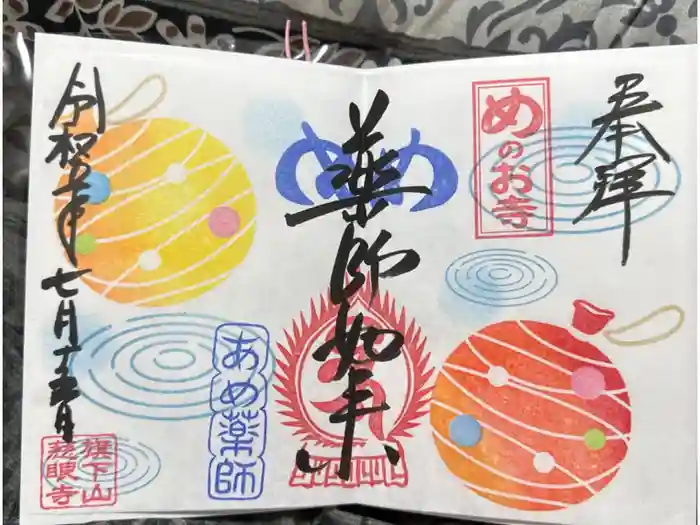 奉拝
めのお寺
め め
薬師如来
あめ薬師
令和五年七月十五日
旗下山
慈眼寺